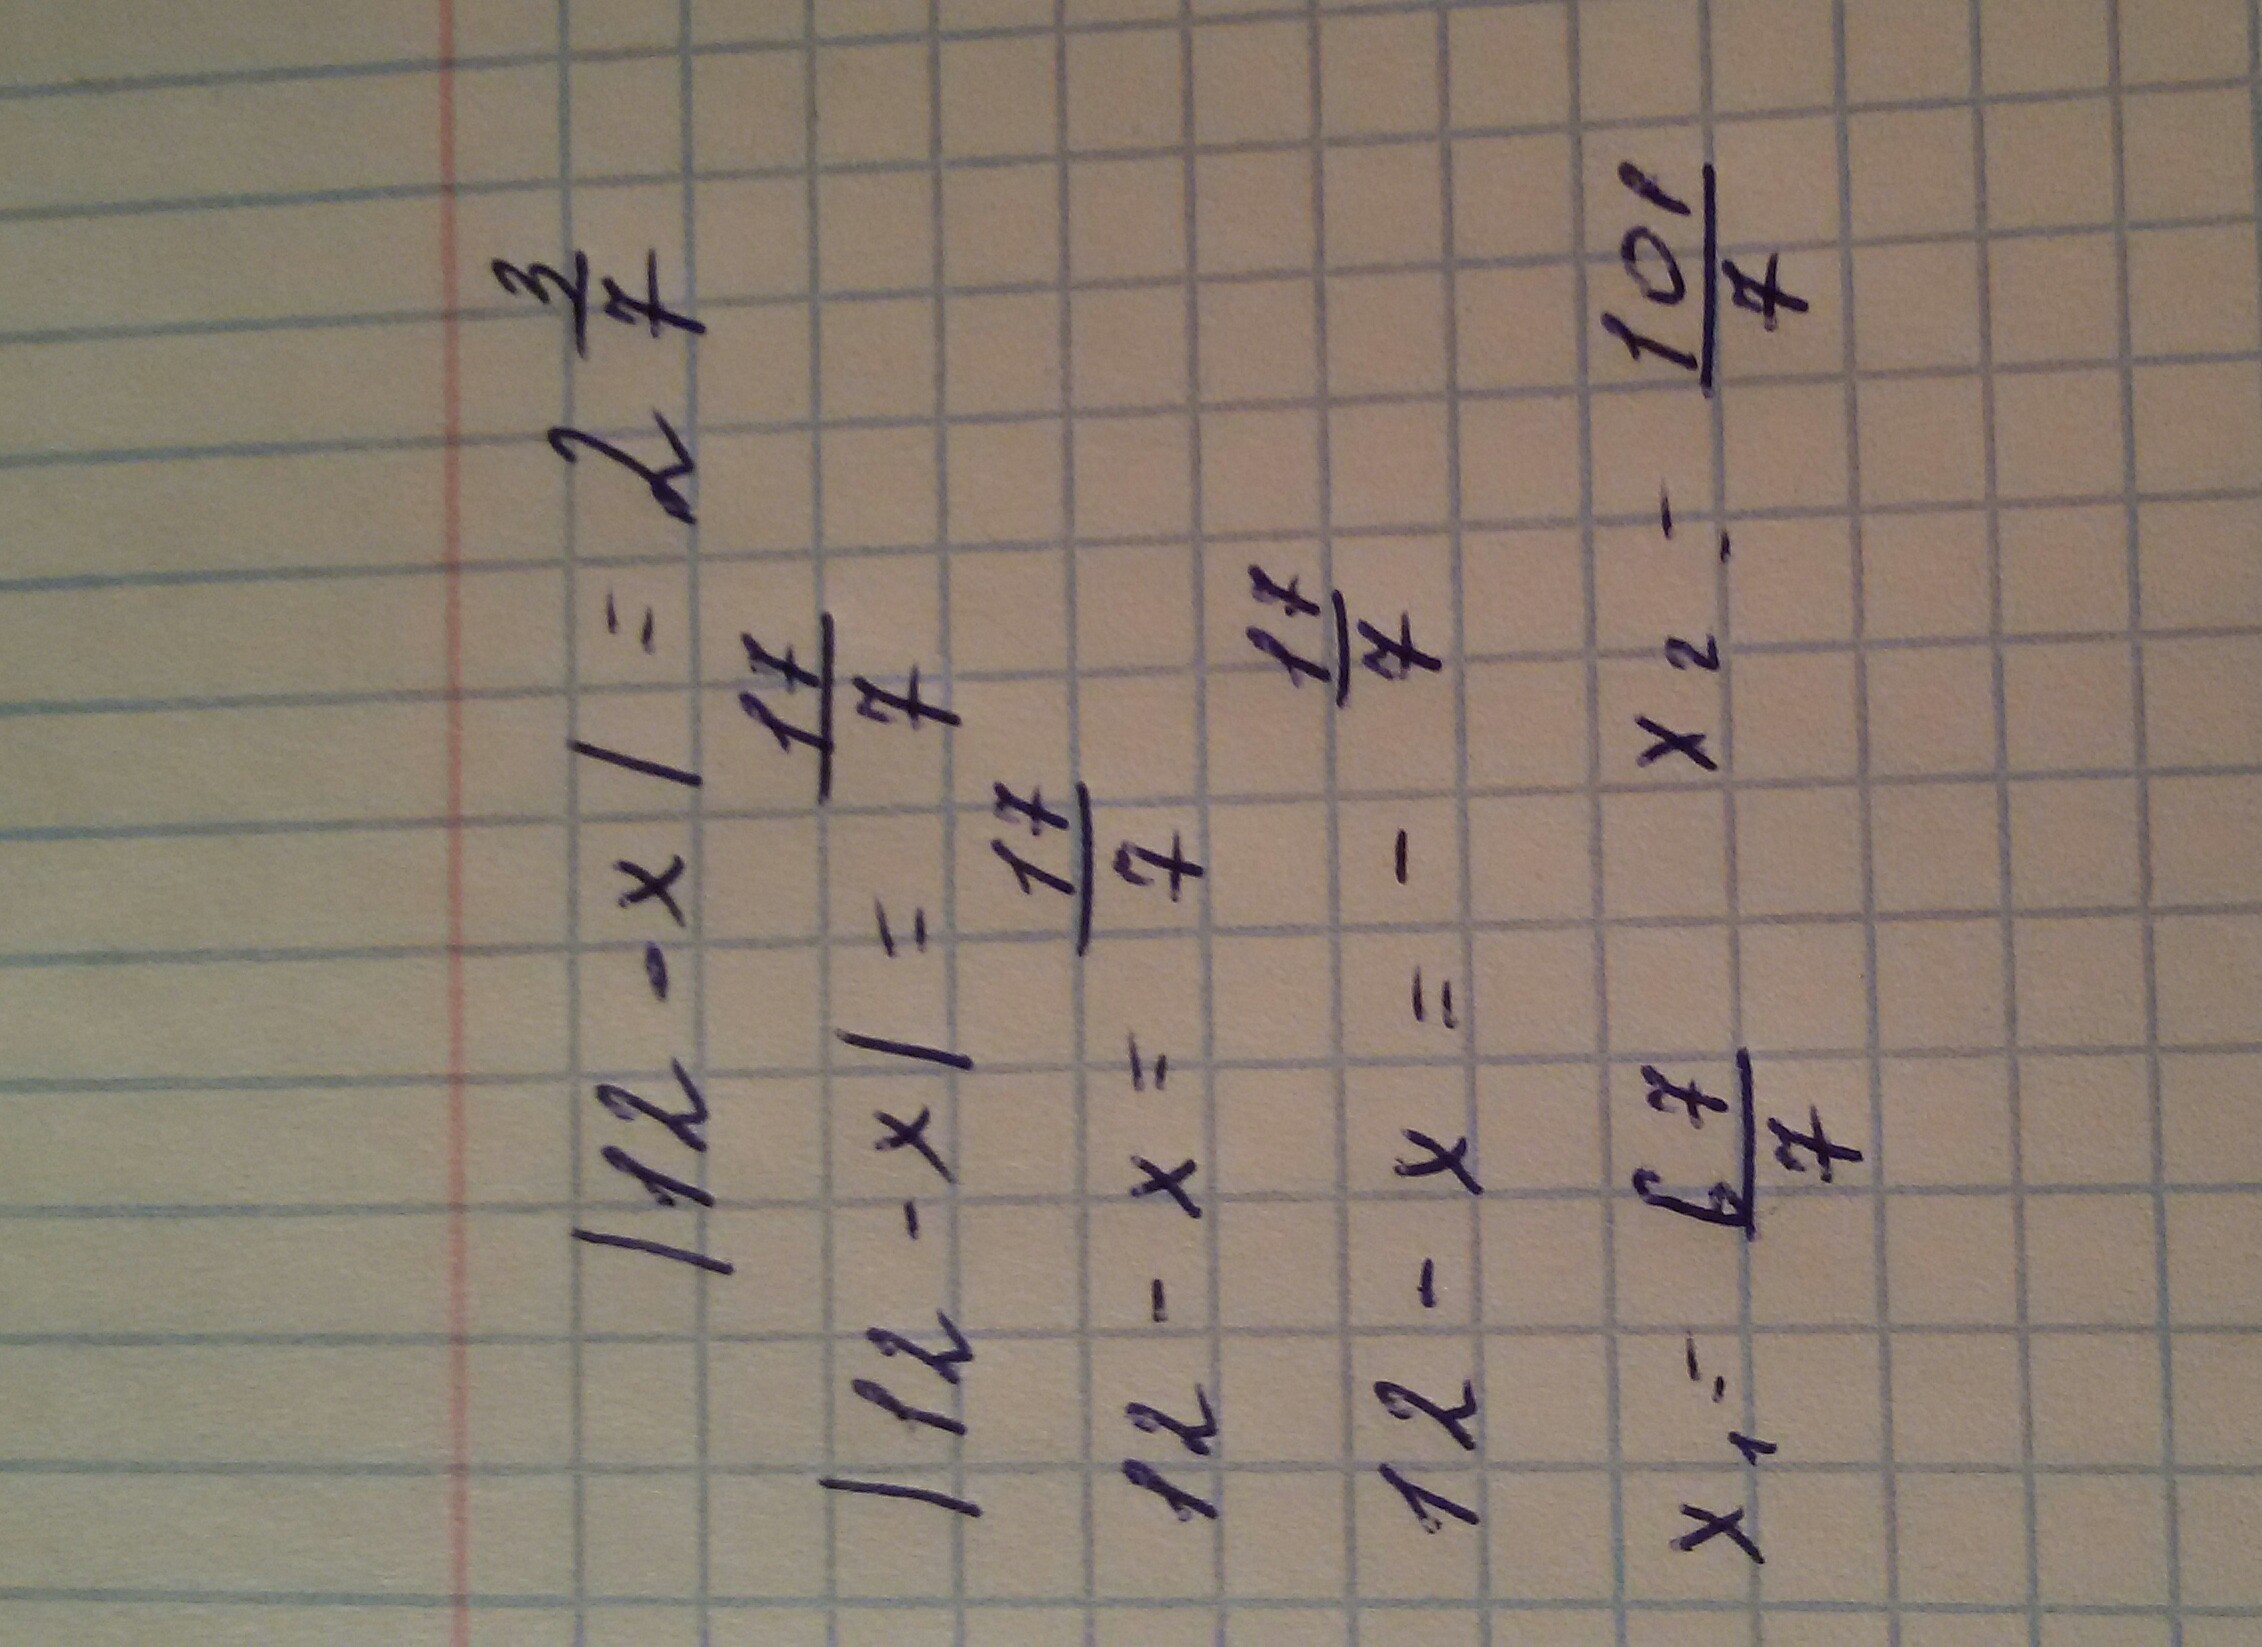 |12 - x| = 2 3/7
|12 - x| = 17/7
12 - x = 17/7
12 - x = - 17/7
x₁ = 67/7 x₂ = 101/7